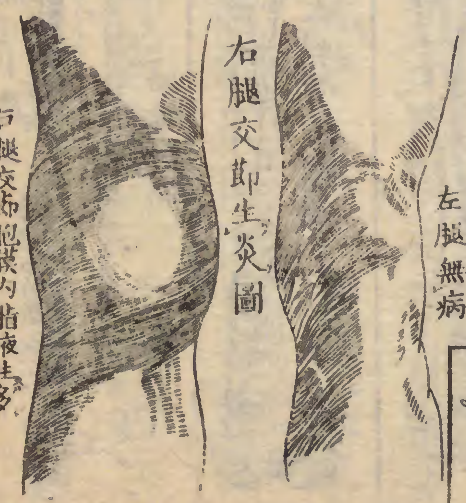 左腿無病
右腿交節生炎圖
右腿交節胞膜内脂液生多